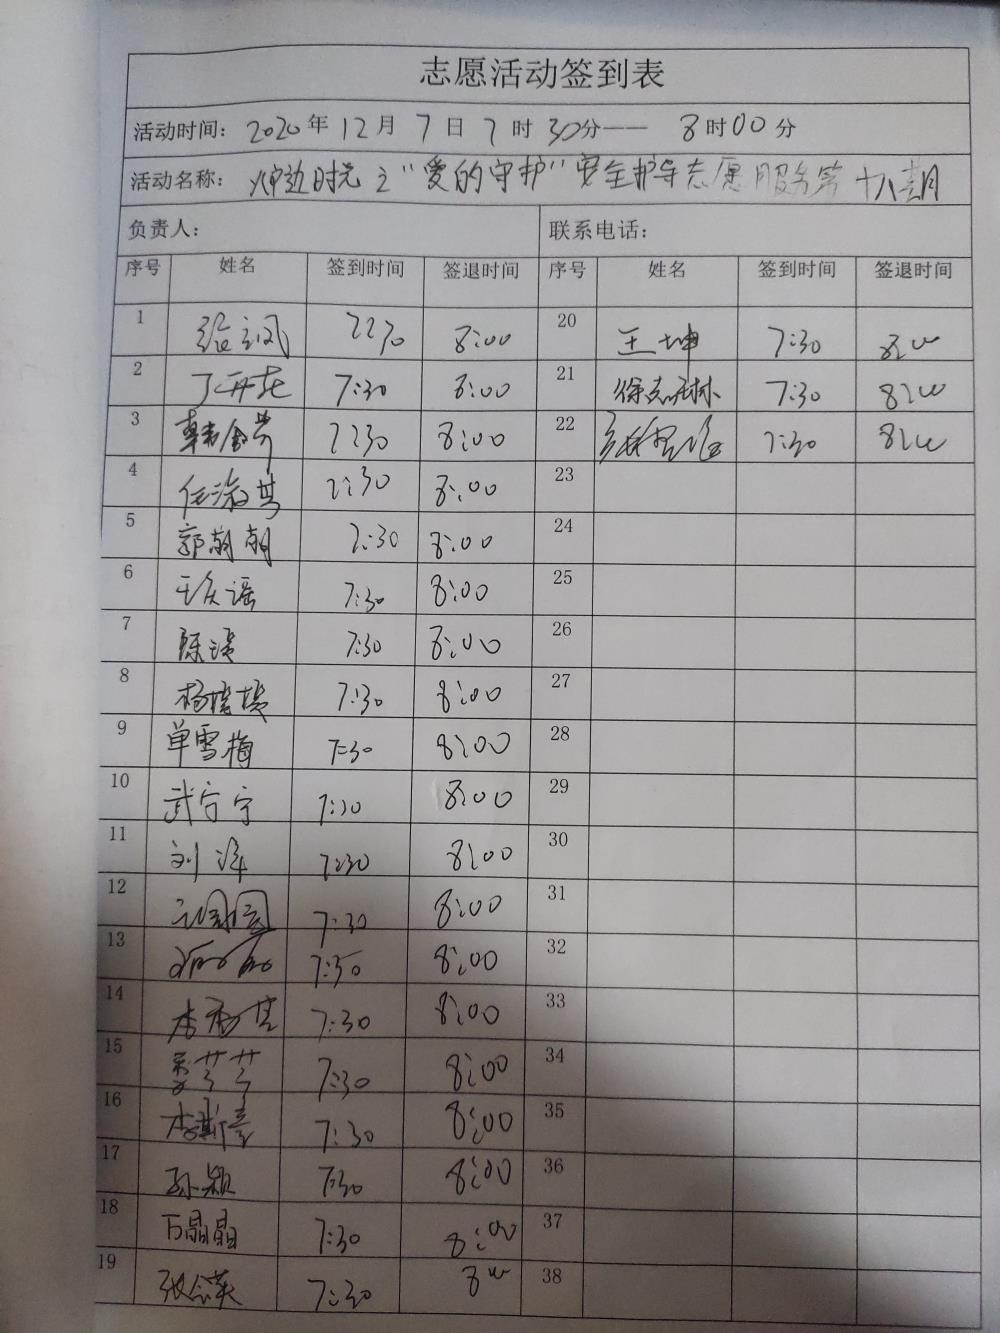 志愿活动签到表
活动时间：2020年12月7日7时30分——8时00分
活动名称：炉边时光之“爱的守护”安全护导志愿服务第十八期
负责人： 联系电话：
序号 姓名 签到时间 签退时间 序号 姓名 签到时间 签退时间
1 7:30 8:00 20 王坤 7:30 8:00
2 丁开花 7:30 8:00 21 徐志琳 7:30 8:00
3 7:30 8:00 22 7:30 8:00
4 任淑其 7:30 8:00 23
5 郭朝朝 7:30 8:00 24
6 7:30 8:00 25
7 7:30 8:00 26
8 杨媛媛 7:30 8:00 27
9 单雪梅 7:30 8:00 28
10 武宁宁 7:30 8:00 29
11 刘洋 7:30 8:00 30
12 7:30 8:00 31
13 7:30 8:00 32
14 7:30 8:00 33
15 7:30 8:00 34
16 7:30 8:00 35
17 孙颖 7:30 8:00 36
18 万晶晶 7:30 8:00 37
19 7:30 8:00 38